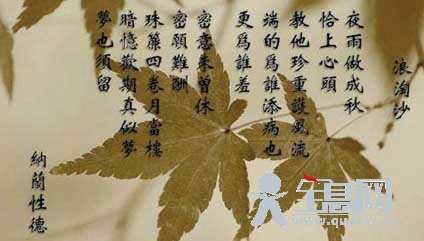 浪淘沙
夜雨做成秋
恰上心頭
教他珍重護風流
端的爲誰添病也
更爲誰羞
密意未曾休
密願難酬
珠簾四卷月當樓
暗憶歡期真似夢
夢也須留
納蘭性德